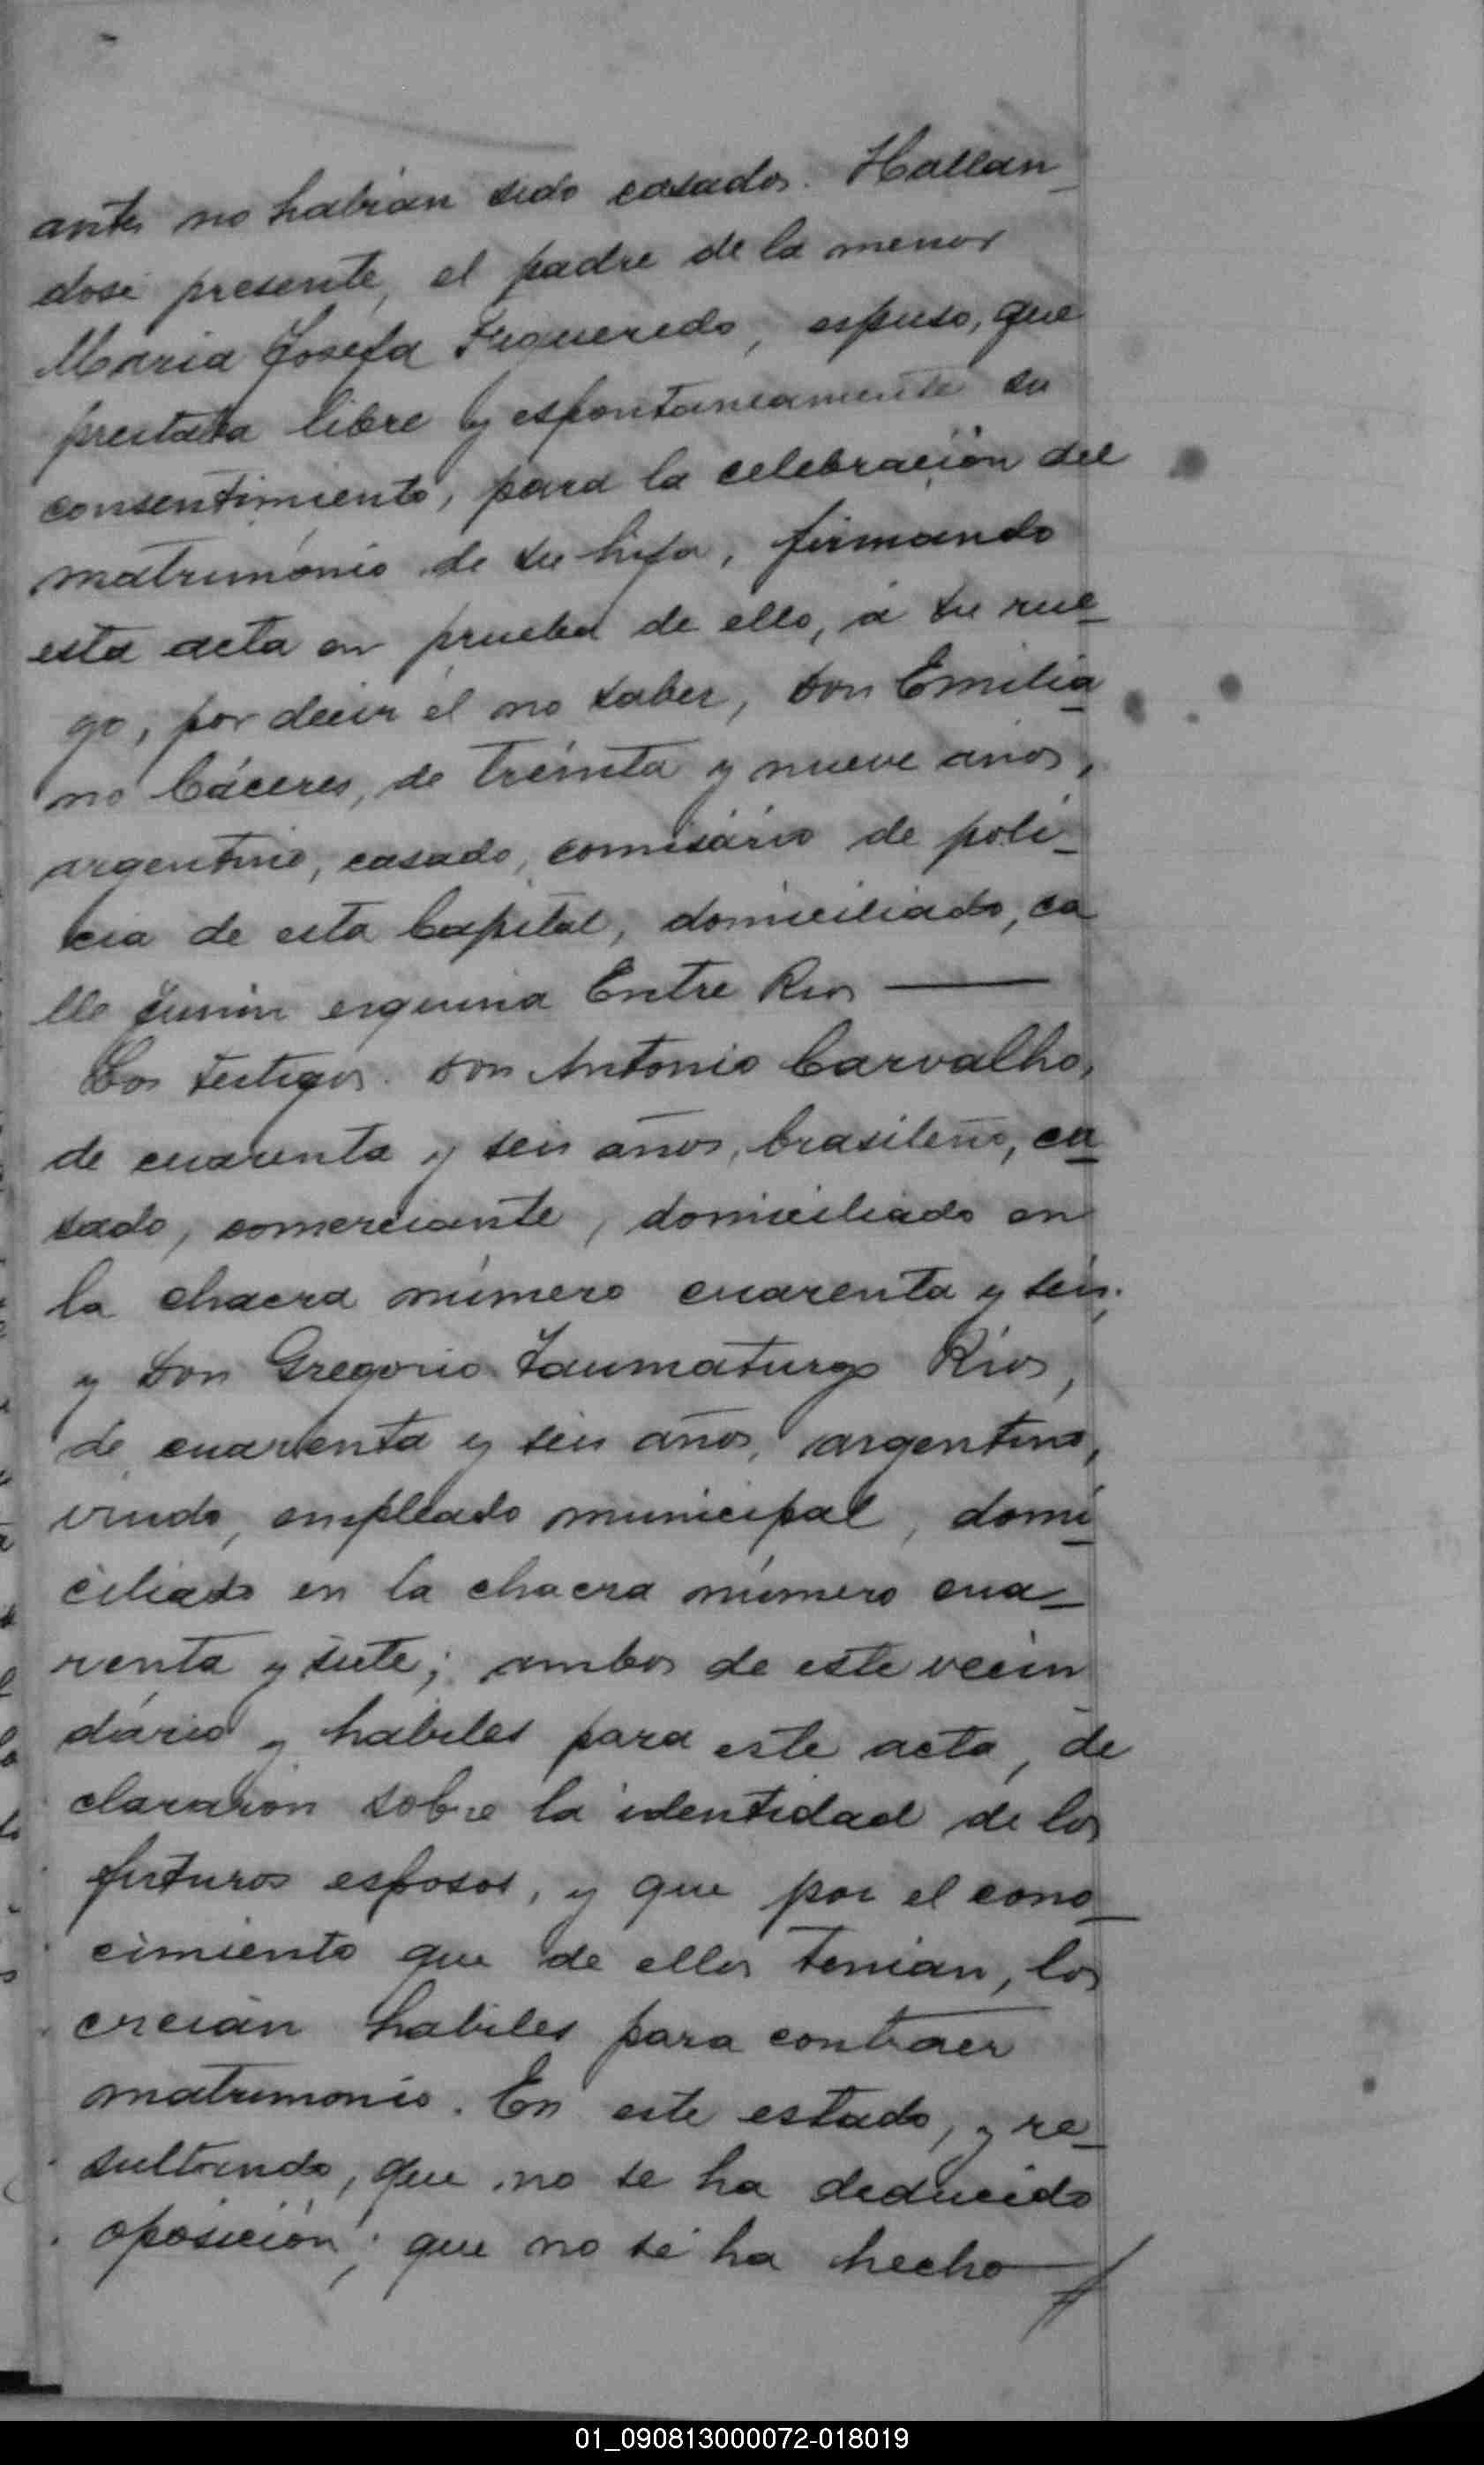 antes no habian sido casados. Hallan-
dose presente, el padre de la menor
Maria Josefa Figueredo, espuso, que
prestaba libre y espontaneamente su
consentimiento, para la celebración del
matrimonio de su hija, firmando
esta acta en prueba de ello, á su rue-
go, por decir él no saber, Don Emilia-
no Cáceres, de treinta y nueve años,
argentino, casado, comisário de poli-
cia de esta Capital, domiciliado, ca
lle Junin esquina Entre Rios ———
Los testigos. Don Antonio Carvalho,
de cuarenta y seis años, brasileño, ca-
sado, comerciante, domiciliado en
la chacra número cuarenta y seis;
y Don Gregorio Taumaturgo Rios,
de cuarenta y seis años, argentino,
viudo, empleado municipal, domi-
ciliado en la chacra número cua-
renta y siete; ambos de este vecin-
dário y habiles para este acto, de
clararon sobre la identidad de los
futuros esposos, y que por el cono-
cimiento que de ellos tenian, los
creian habiles para contraer
matrimonio. En este estado, y re-
sultando, que no se ha deducido
oposición; que no se ha hecho
01_090813000072-018019